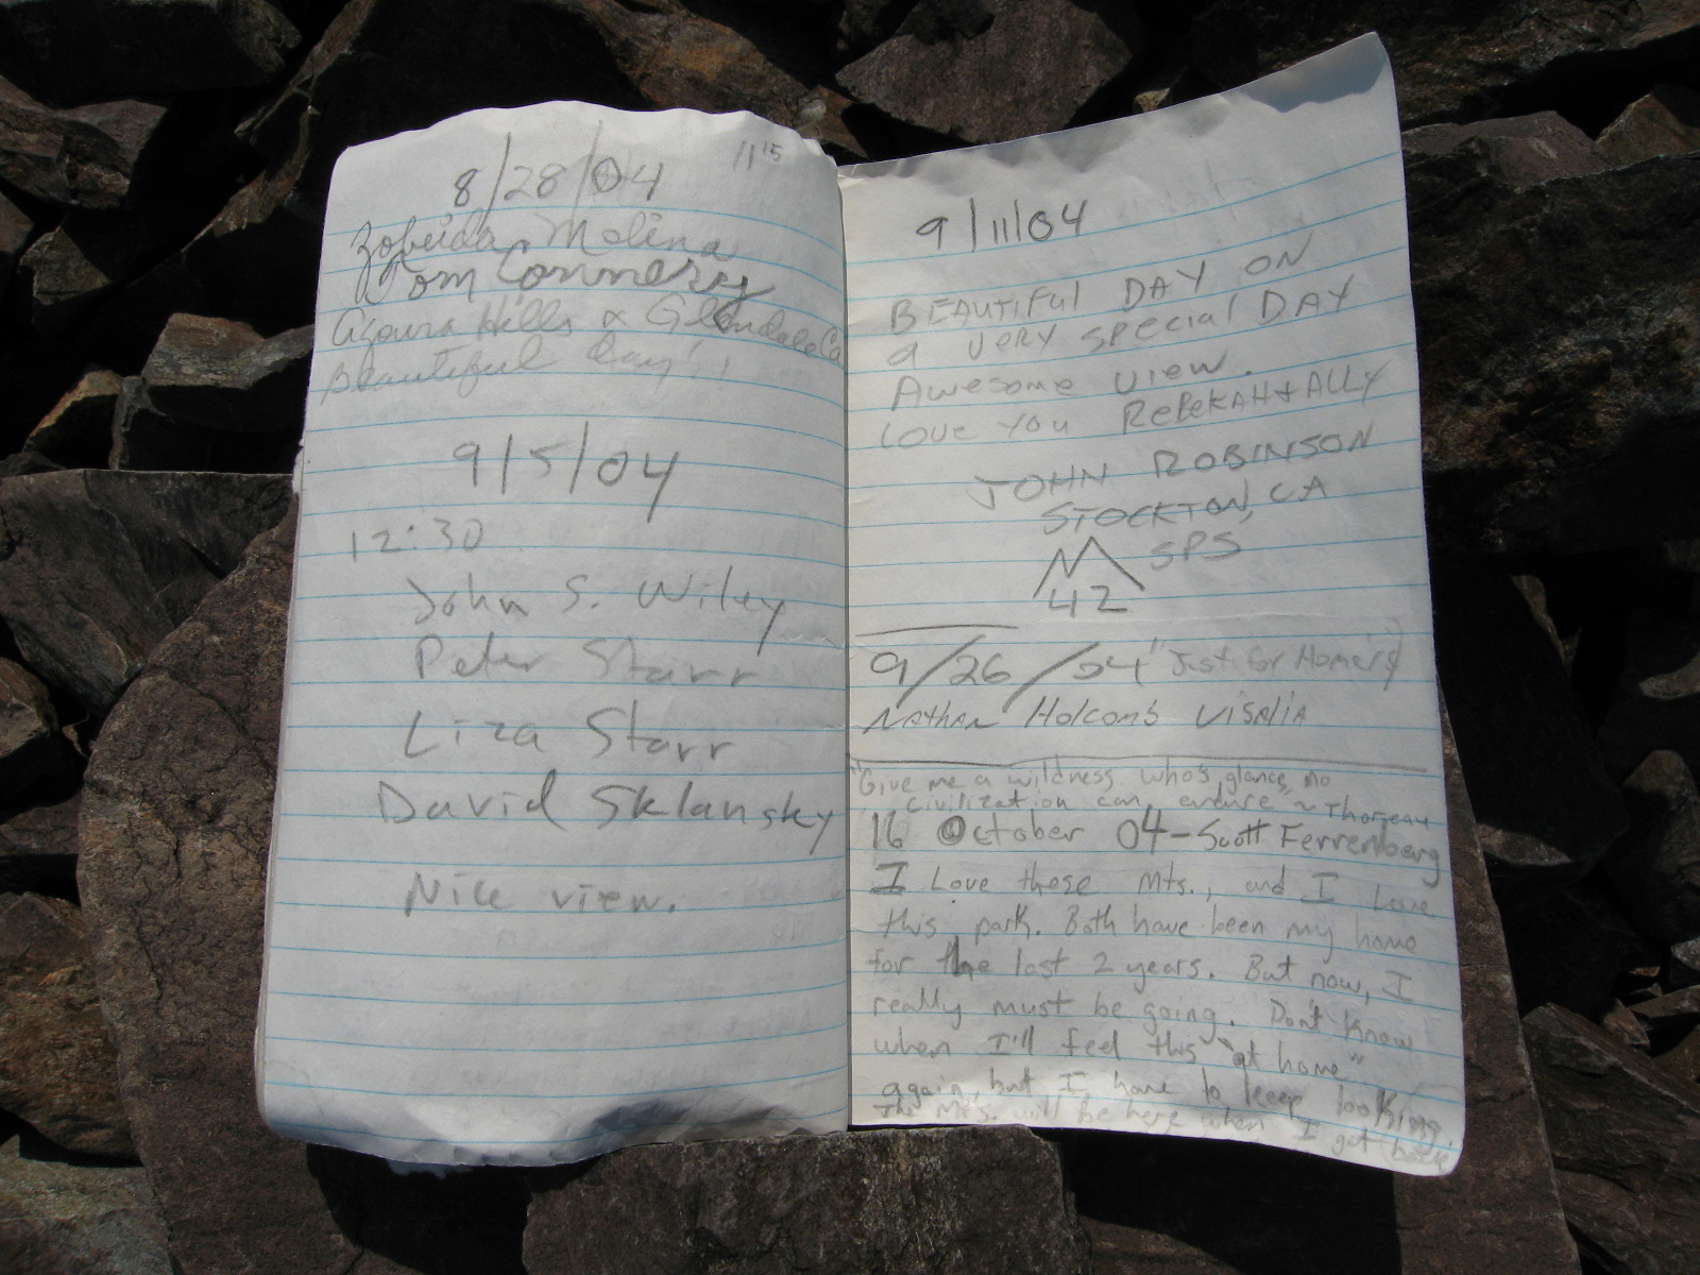 8/28/04 11¹⁵
Zobeida Molina
Tom Connery
Agoura Hills & Glendale Ca
Beautiful day!!
9/5/04
12:30
John S. Wiley
Peter Starr
Liza Starr
David Sklansky
Nice view.
9/11/04
BEAUTIFUL DAY ON
a VERY SPECIAL DAY
AWESOME VIEW.
LOVE YOU REBEKAH + ALLY
JOHN ROBINSON
STOCKTON, CA
SPS
42
9/26/04 "Just for Homers"
NATHAN Holcomb VISALIA
"Give me a wildness who's glance no
civilization can endure" ~ Thoreau
16 October 04 - Scott Ferrenberg
I Love these Mts., and I Love
this park. Both have been my home
for the last 2 years. But now, I
really must be going. Don't know
when I'll feel this "at home"
again, but I have to keep looking.
The Mts. will be here when I get back